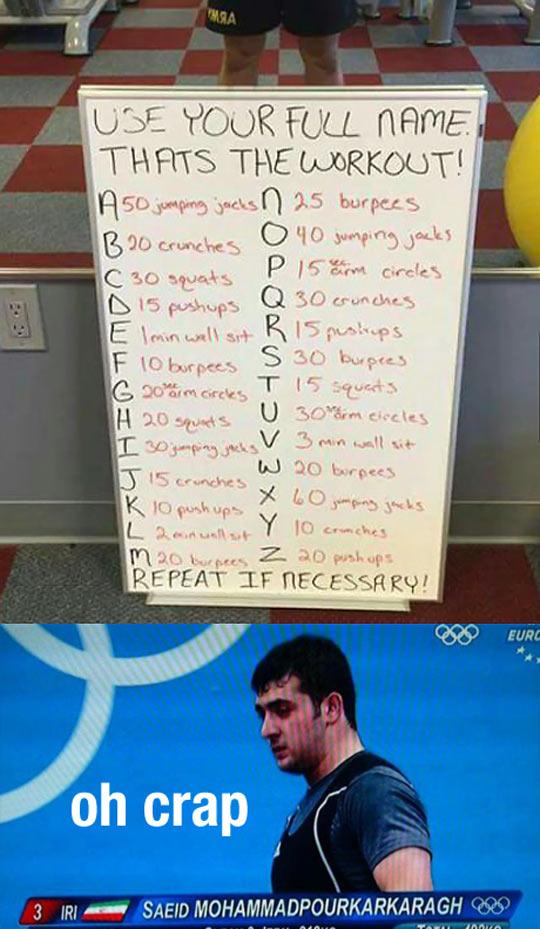 ARMY
USE YOUR FULL NAME.
THATS THE WORKOUT!
A 50 jumping jacks
B 20 crunches
C 30 squats
D 15 pushups
E 1 min wall sit
F 10 burpees
G 20 sec arm circles
H 20 squats
I 30 jumping jacks
J 15 crunches
K 10 pushups
L 2 min wall sit
M 20 burpees
N 25 burpees
O 40 jumping jacks
P 15 sec arm circles
Q 30 crunches
R 15 pushups
S 30 burpees
T 15 squats
U 30 sec arm circles
V 3 min wall sit
W 20 burpees
X 60 jumping jacks
Y 10 crunches
Z 20 pushups
REPEAT IF NECESSARY!
EURO
oh crap
3 IRI SAEID MOHAMMADPOURKARKARAGH